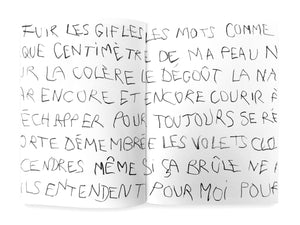 FUIR LES GIFLES LES MOTS COMME
QUE CENTIMÈTRE DE MA PEAU N
UR LA COLÈRE LE DÉGOÛT LA NA
AR ENCORE ET ENCORE COURIR À
ÉCHAPPER POUR TOUJOURS SE RÉ
ORTE DÉMEMBRÉE LES VOLETS CLO
CENDRES MÊME SI ÇA BRÛLE NE P
ILS ENTENDENT POUR MOI POUR